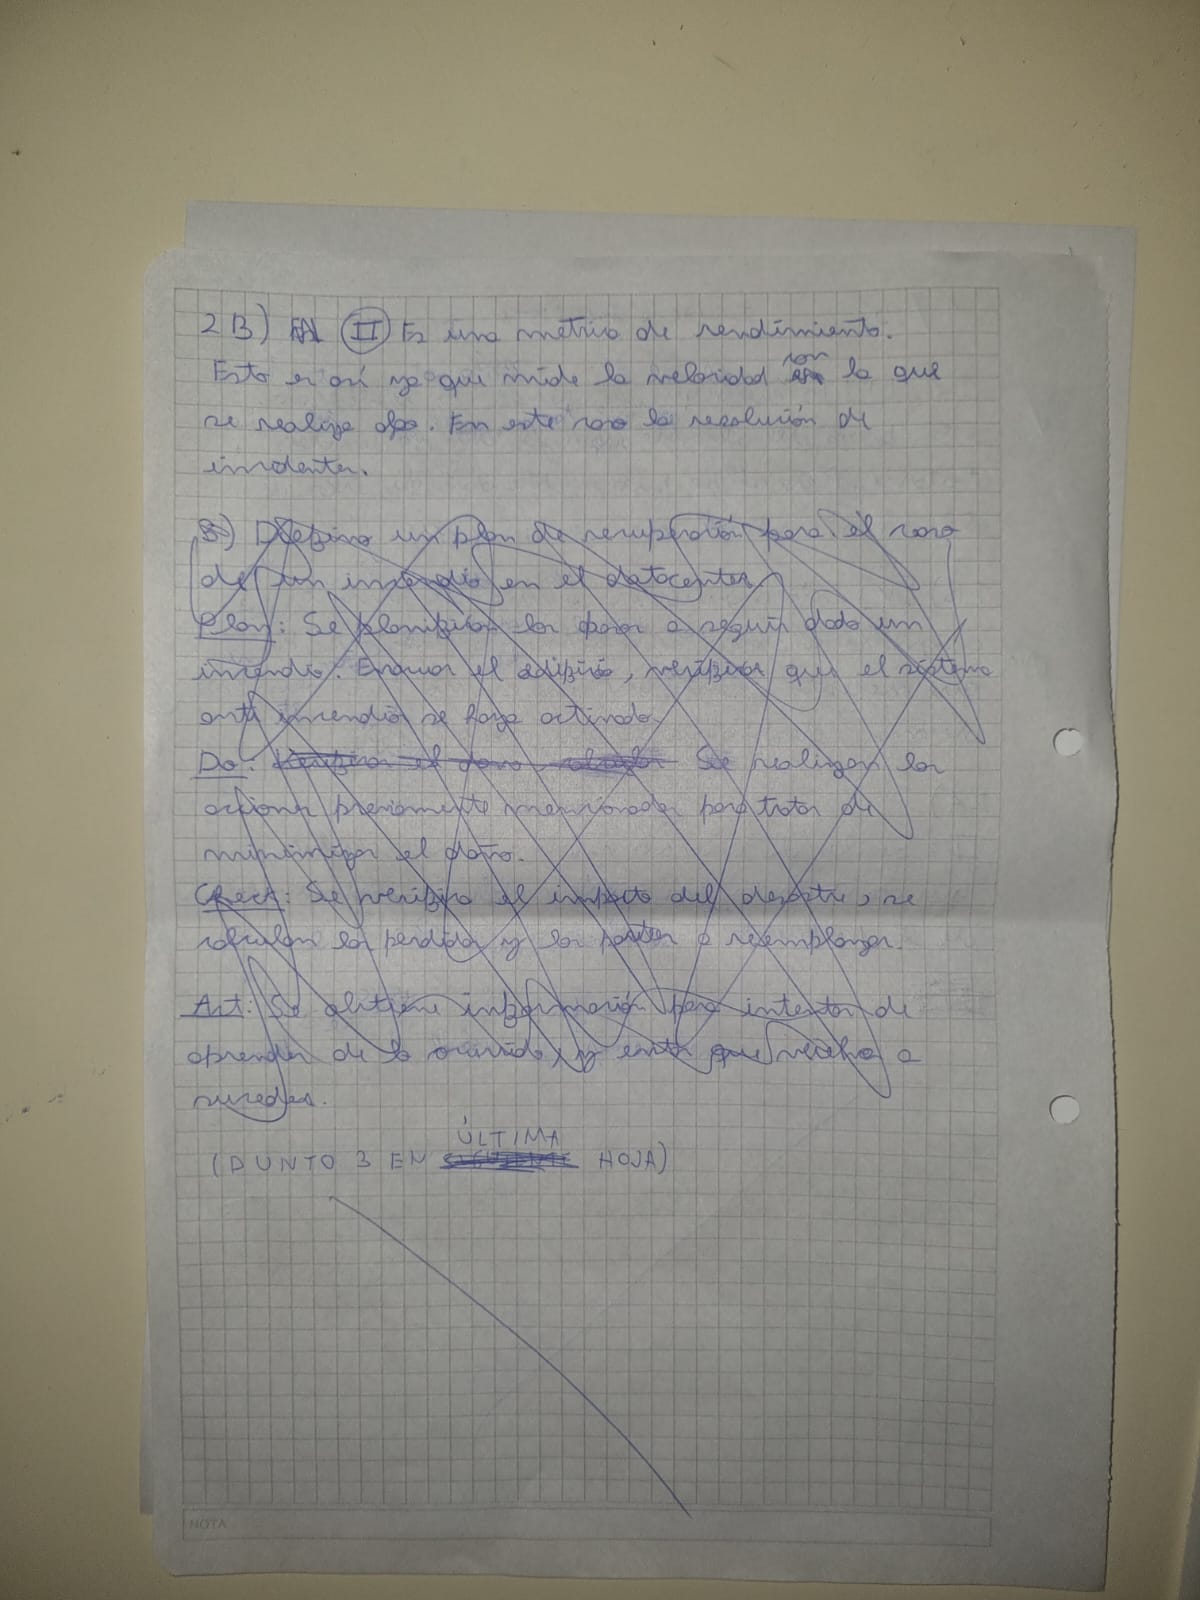 2B) II Es una metrica de rendimiento.
Esto es así ya que mide la velocidad con la que
se realiza algo. En este caso la resolución de
incidentes.
3) Defino un plan de recuperación para el caso
de un incendio en el datacenter.
Plan: Se planifican los pasos a seguir dado un
incendio. Evacuar el edificio, verificar que el sistema
anti incendios se haya activado.
Do: Se realizan las
acciones previamente mencionadas para tratar de
minimizar el daño.
Check: Se verifica el impacto del desastre, se
calculan las perdidas y las partes a reemplazar.
Act: Se obtiene información para intentar de
aprender de lo ocurrido, y evitar que vuelva a
suceder.
ÚLTIMA
(PUNTO 3 EN HOJA)
NOTA